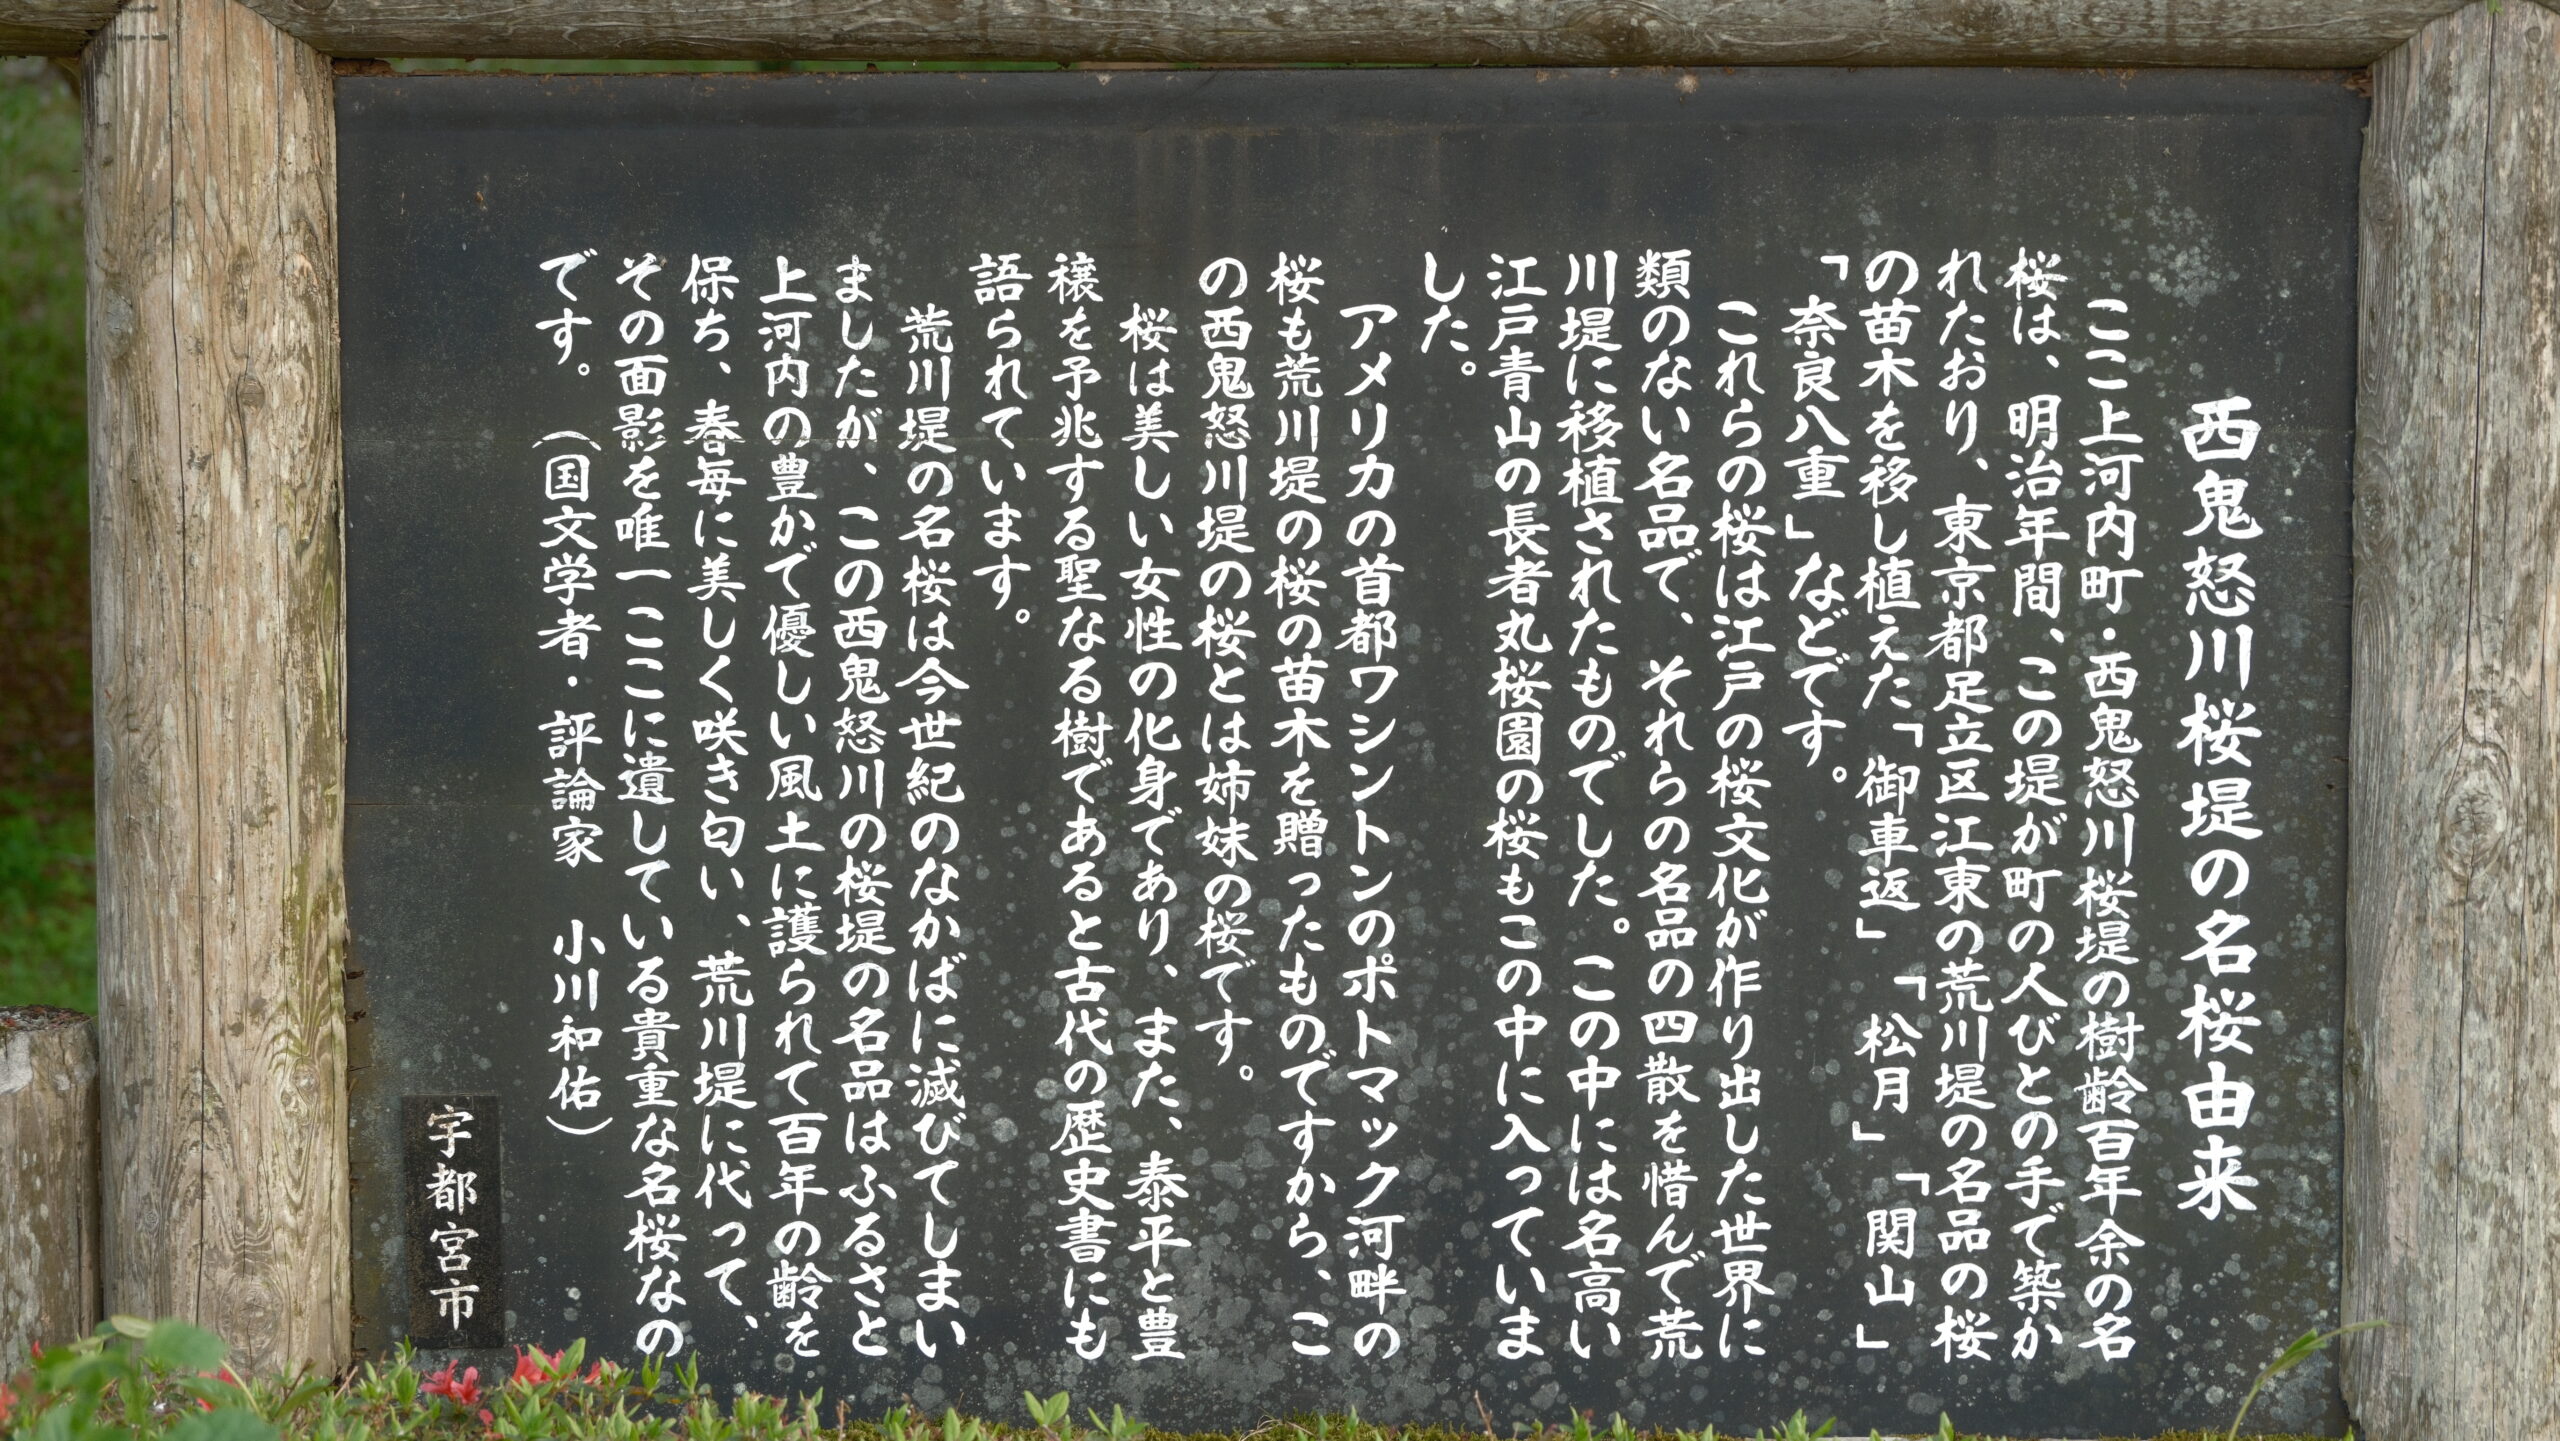 西鬼怒川桜堤の名桜由来
ここ上河内町・西鬼怒川桜堤の樹齢百年余の名
桜は、明治年間、この堤が町の人びとの手で築か
れたおり、東京都足立区江東の荒川堤の名品の桜
の苗木を移し植えた「御車返」「松月」「関山」
「奈良八重」などです。
これらの桜は江戸の桜文化が作り出した世界に
類のない名品で、それらの名品の四散を惜んで荒
川堤に移植されたものでした。この中には名高い
江戸青山の長者丸桜園の桜もこの中に入っていま
した。
アメリカの首都ワシントンのポトマック河畔の
桜も荒川堤の桜の苗木を贈ったものですから、こ
の西鬼怒川堤の桜とは姉妹の桜です。
桜は美しい女性の化身であり、また、泰平と豊
穣を予兆する聖なる樹であると古代の歴史書にも
語られています。
荒川堤の名桜は今世紀のなかばに滅びてしまい
ましたが、この西鬼怒川の桜堤の名品はふるさと
上河内の豊かで優しい風土に護られて百年の齢を
保ち、春毎に美しく咲き匂い、荒川堤に代って、
その面影を唯一ここに遺している貴重な名桜なの
です。（国文学者・評論家　小川和佑）
宇都宮市